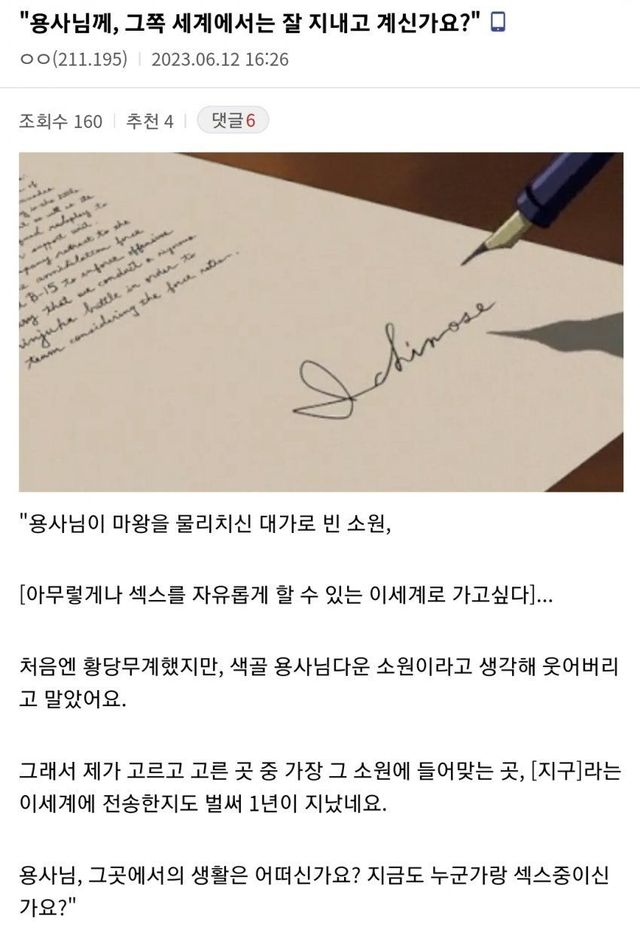 "용사님께, 그쪽 세계에서는 잘 지내고 계신가요?"
ㅇㅇ(211.195) | 2023.06.12 16:26
조회수 160 | 추천 4 | 댓글6
B-15 to
battle in order to
team considering the force
Ichinose
"용사님이 마왕을 물리치신 대가로 빈 소원,
[아무렇게나 섹스를 자유롭게 할 수 있는 이세계로 가고싶다]...
처음엔 황당무계했지만, 색골 용사님다운 소원이라고 생각해 웃어버리
고 말았어요.
그래서 제가 고르고 고른 곳 중 가장 그 소원에 들어맞는 곳, [지구]라는
이세계에 전송한지도 벌써 1년이 지났네요.
용사님, 그곳에서의 생활은 어떠신가요? 지금도 누군가랑 섹스중이신
가요?"